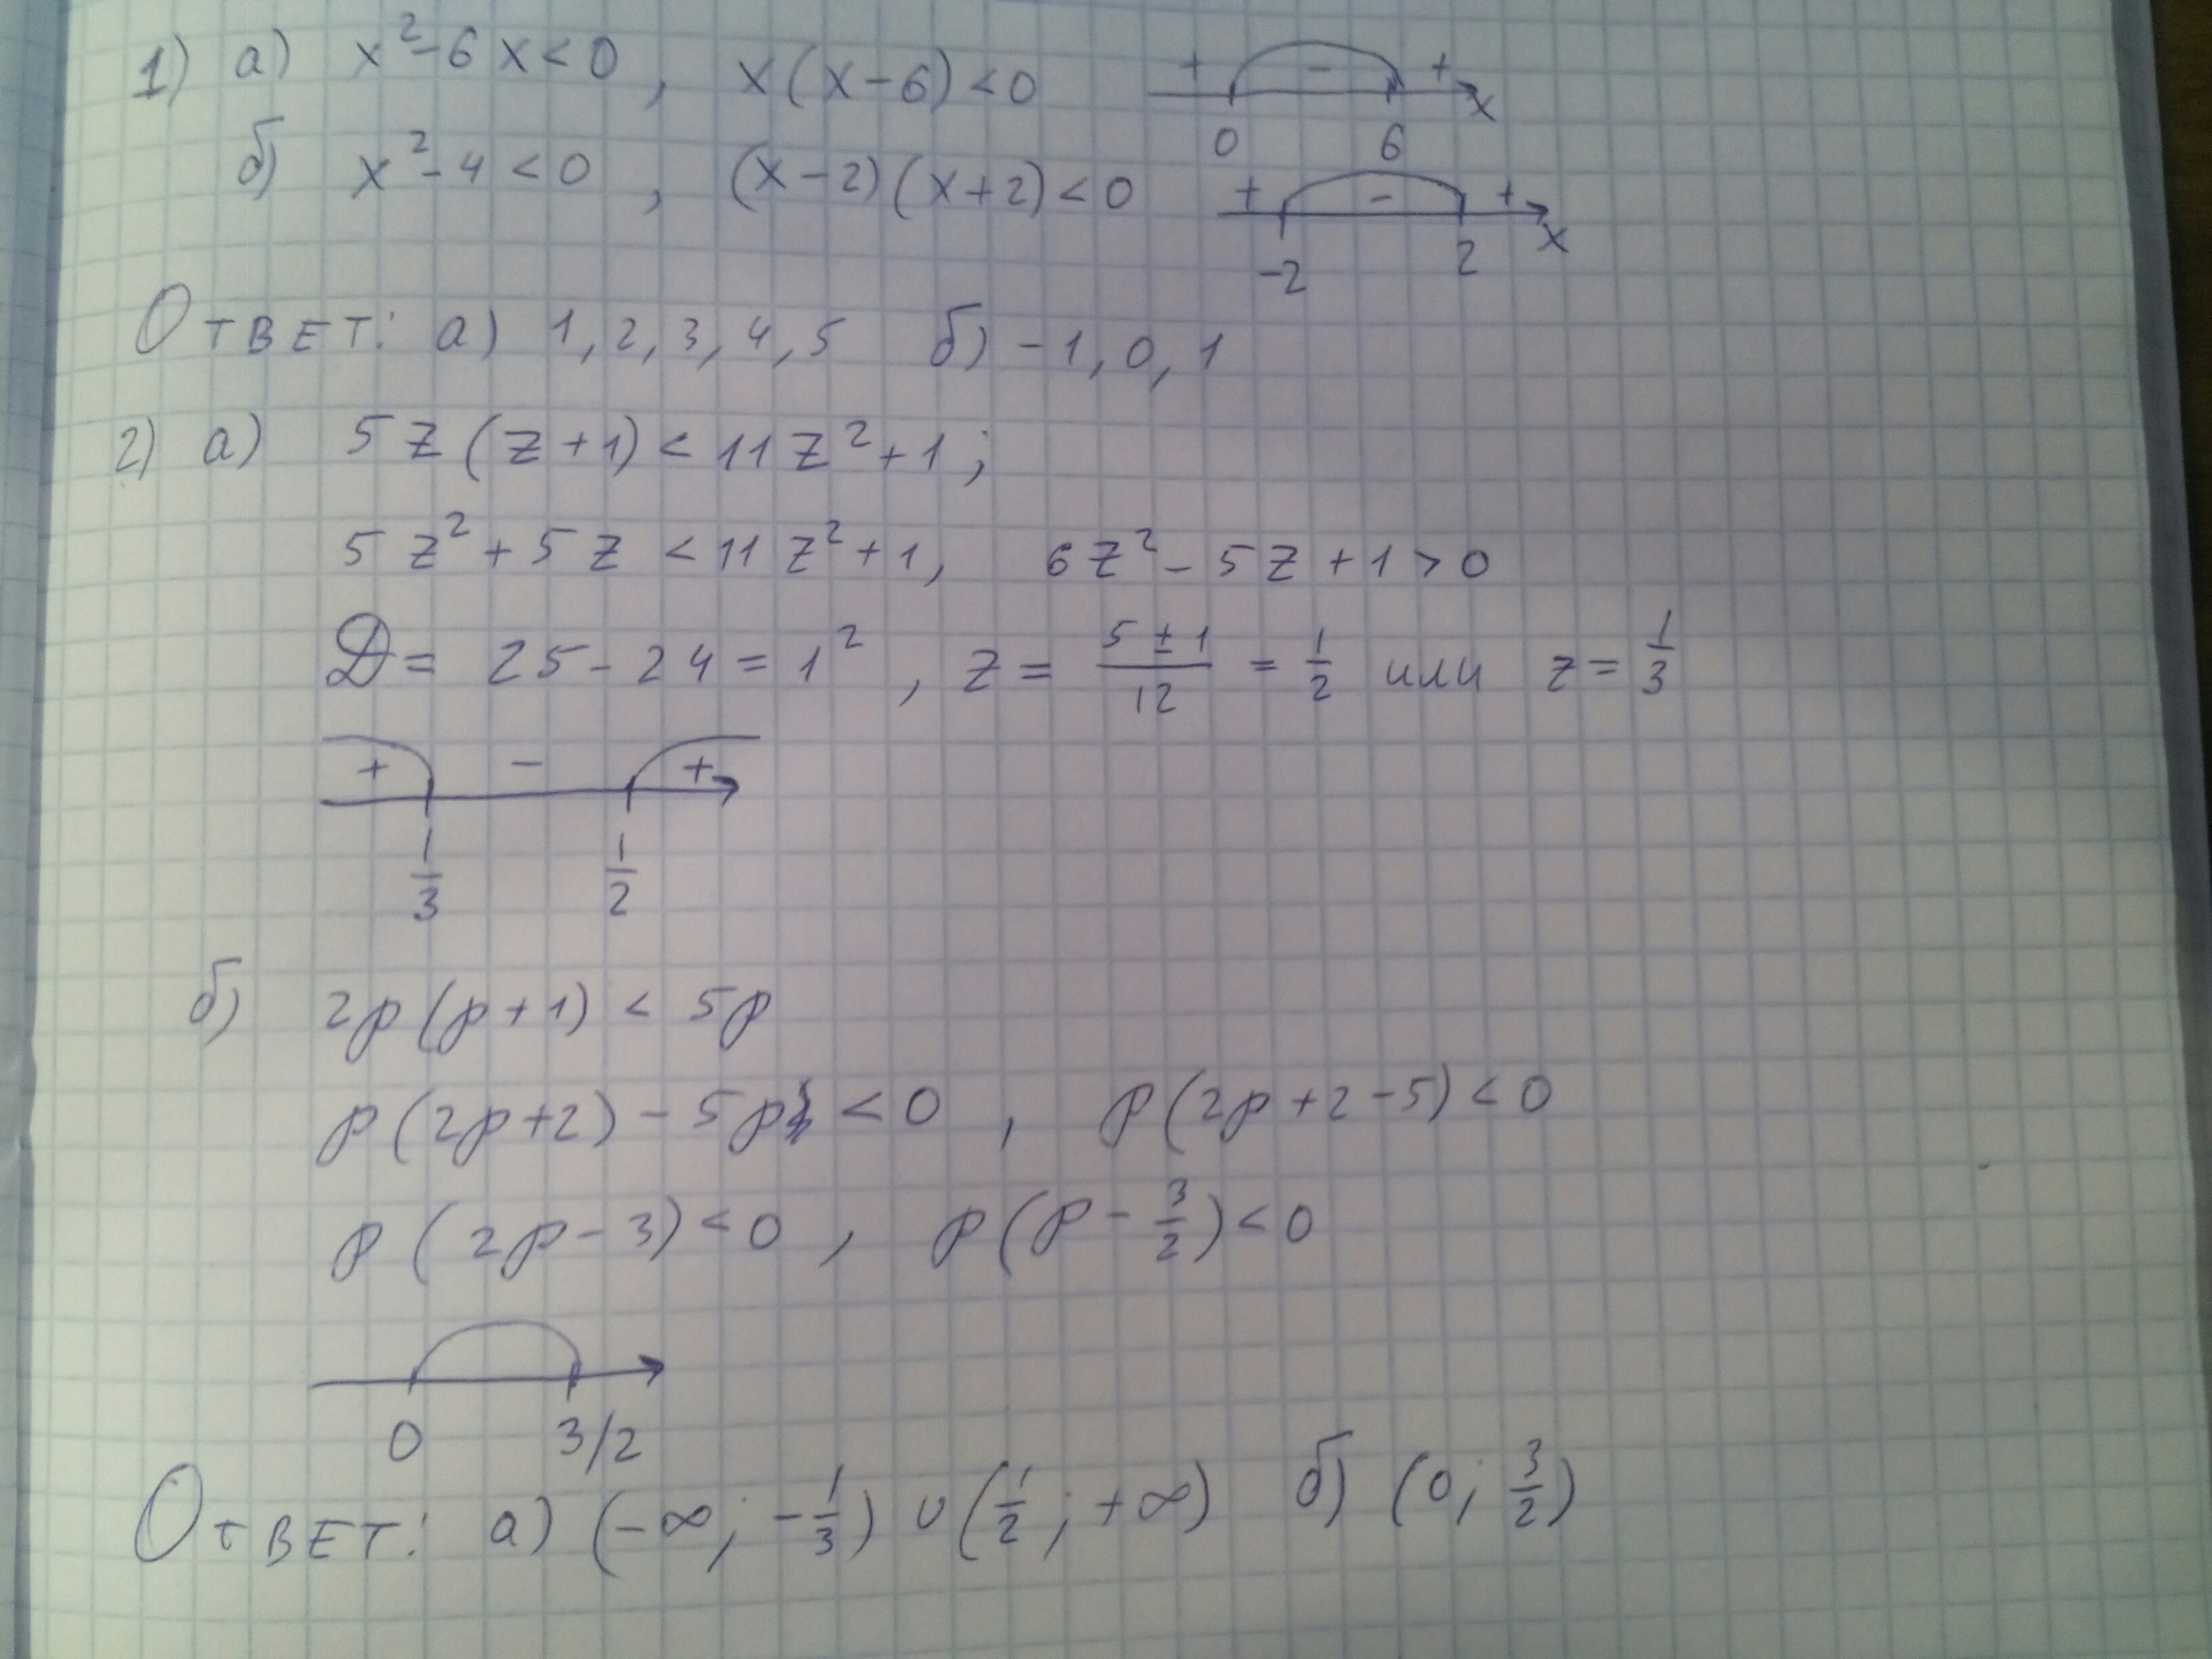 1) а) x²-6x<0, x(x-6)<0 + - + x
0 6
б) x²-4<0, (x-2)(x+2)<0 + - + x
-2 2
Ответ: а) 1,2,3,4,5 б) -1,0,1
2) а) 5z(z+1)<11z²+1;
5z²+5z<11z²+1, 6z²-5z+1>0
D=25-24=1², z=(5±1)/12=1/2 или z=1/3
+ - +
1/3 1/2
б) 2p(p+1)<5p
p(2p+2)-5p<0, p(2p+2-5)<0
p(2p-3)<0, p(p-3/2)<0
0 3/2
Ответ: а) (-∞; -1/3)∪(1/2; +∞) б) (0; 3/2)